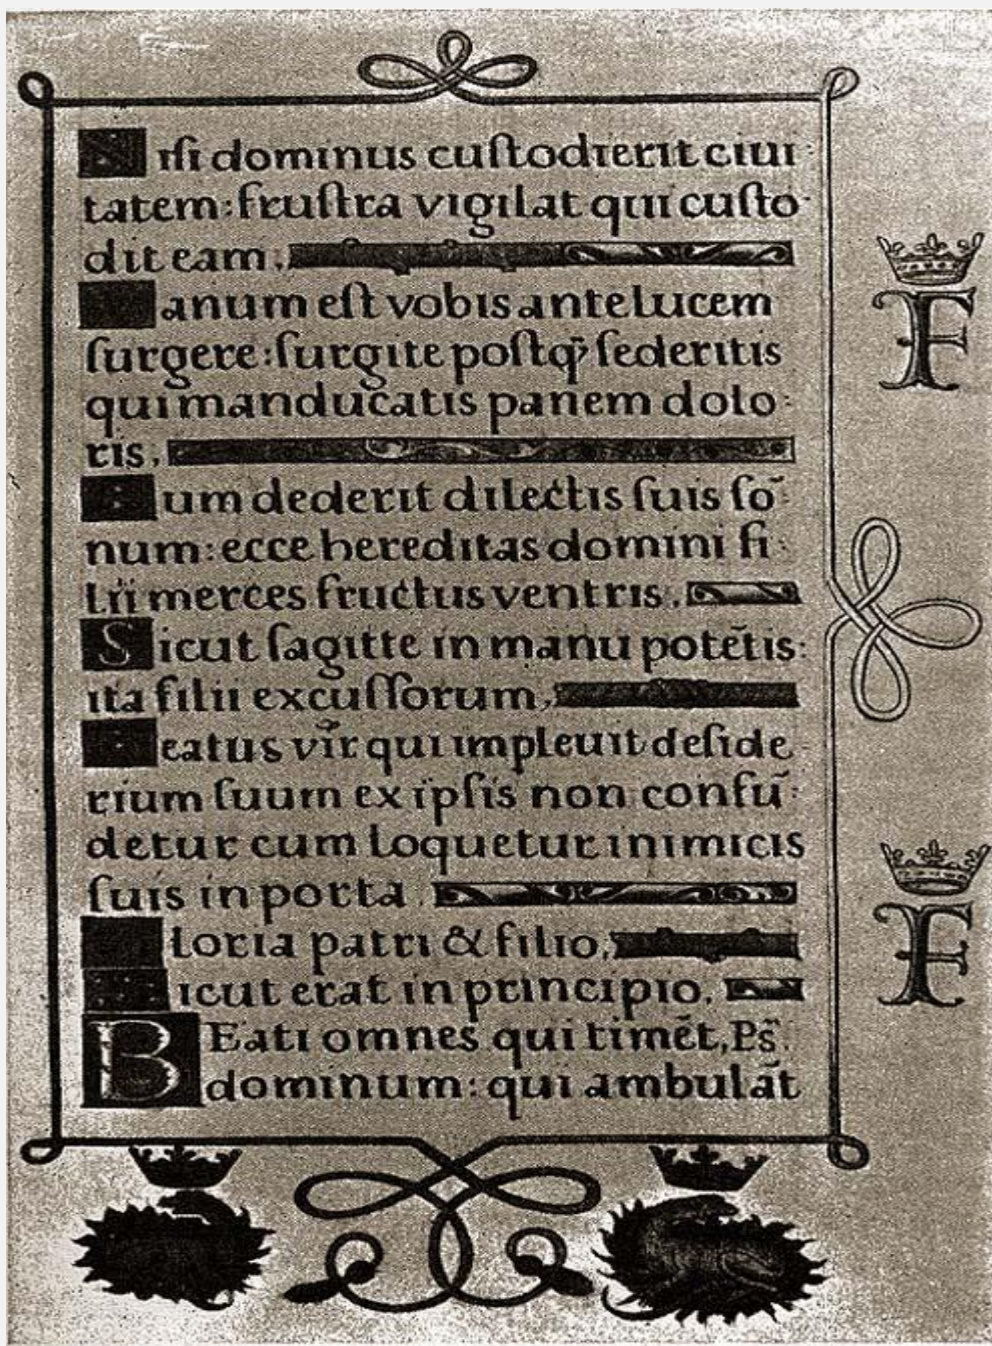 Nisi dominus custodierit ciui
tatem: frustra vigilat qui custo
dit eam.
Vanum est vobis ante lucem
surgere: surgite postqꝫ sederitis
qui manducatis panem dolo
ris.
Cum dederit dilectis suis so᷑
num: ecce hereditas domini fi
lii merces fructus ventris.
Sicut sagitte in manu potētis:
ita filii excussorum.
Beatus vir qui impleuit deside
rium suum ex ipsis non confū
detur cum loquetur inimicis
suis in porta.
Gloria patri & filio.
Sicut erat in principio.
BEati omnes qui timēt, Ps̄.
dominum: qui ambulāt
F
F